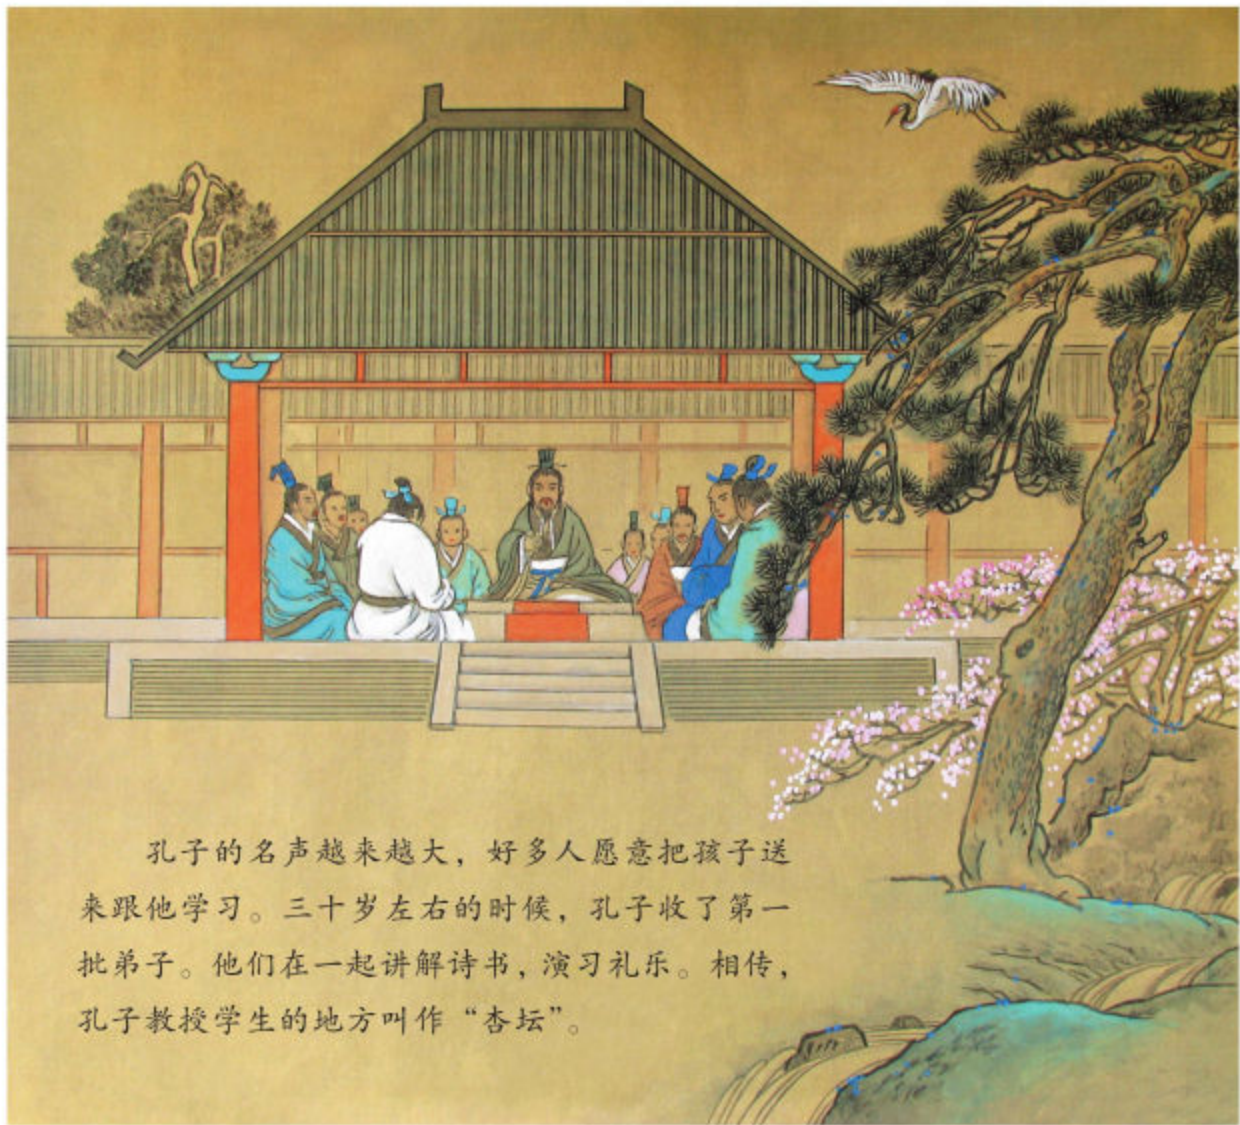 孔子的名声越来越大，好多人愿意把孩子送
来跟他学习。三十岁左右的时候，孔子收了第一
批弟子。他们在一起讲解诗书，演习礼乐。相传，
孔子教授学生的地方叫作“杏坛”。